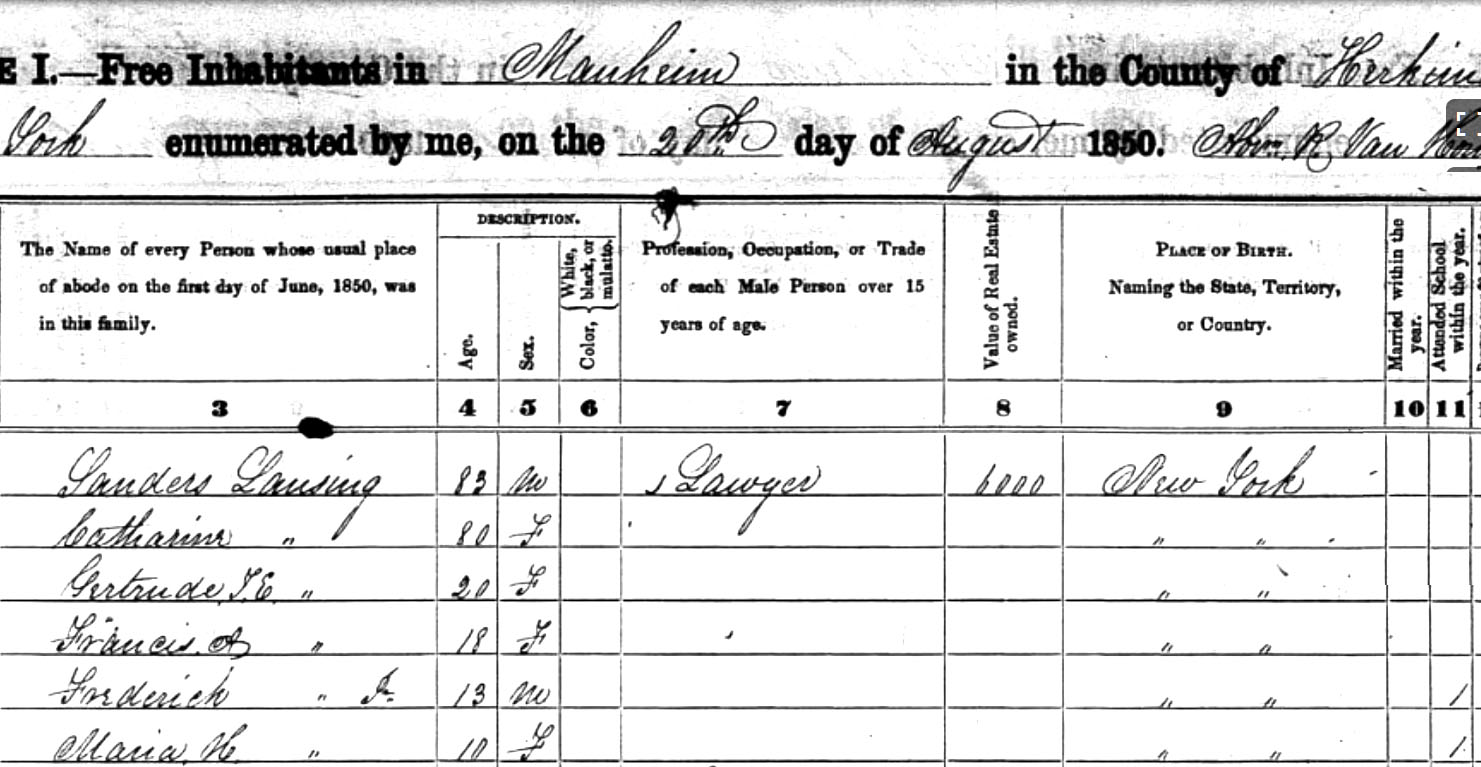 E I.—Free Inhabitants in Manheim in the County of Herkim
York enumerated by me, on the 20th day of August 1850. Abm. R. Van
DESCRIPTION.
The Name of every Person whose usual place of abode on the first day of June, 1850, was in this family.
Age.
Sex.
Color, { White, black, or mulatto.
Profession, Occupation, or Trade of each Male Person over 15 years of age.
Value of Real Estate owned.
PLACE OF BIRTH. Naming the State, Territory, or Country.
Married within the year.
Attended School within the year.
3 4 5 6 7 8 9 10 11
Sanders Lansing 83 M Lawyer 6000 New York
Catharine " 80 F " "
Gertrude, T.E. " 20 F " "
Francis. A " 18 F " "
Frederick " Jr 13 M " " 1
Maria, H. " 10 F " " 1